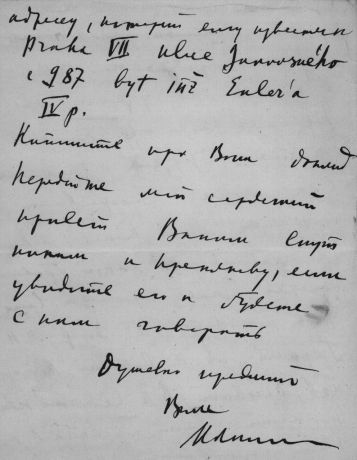 адресу, который ему известен
Praha VII ulice
č 987 byt inž Euler'a
IV p.
Напишите про Ваш доклад
Передайте мой сердечный
привет Вашим
и если
увидите его и будете
с ним говорить
Душевно преданный
Вам